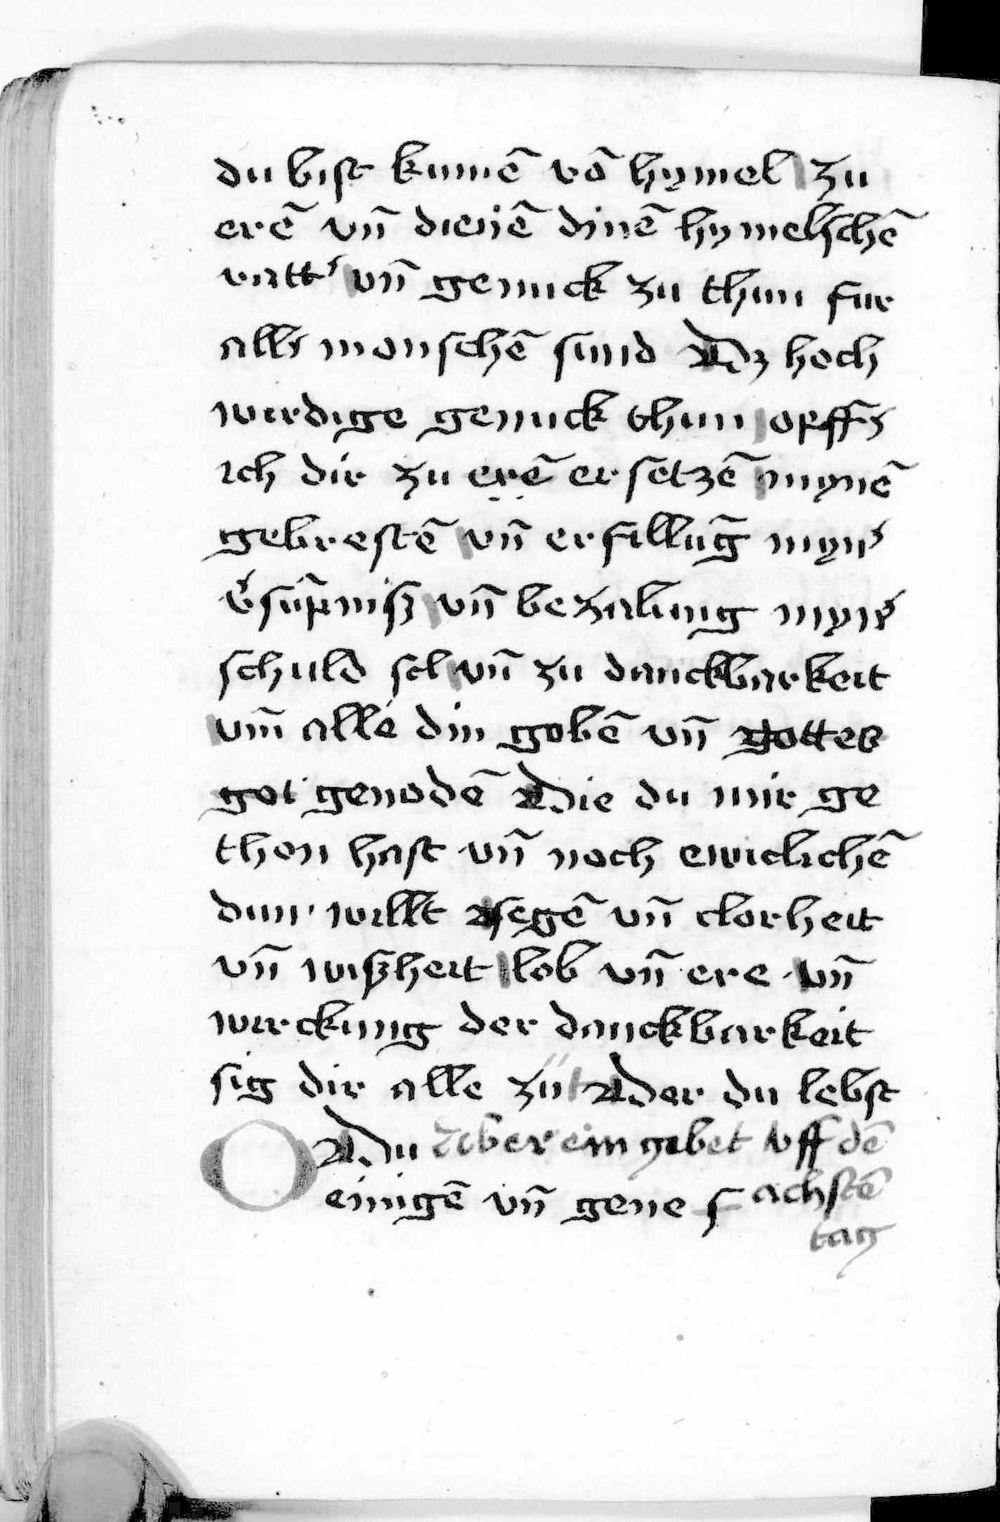 du bist kumē vō hymel zu
erē vn̄ dienē dinē hymelschē
vatt' vn̄ genuck zu thun fur
all' monschē sund Dz hoch
wirdige genuck thun opff'
ich dir zu erē ersetzē mynē
gebrestē vn̄ erfillūg myn'
v'sūmniß vn̄ bezalung myn'
schuld vn̄ zu danckbarkeit
vm̄ alle din gobē vn̄
got genodē Die du mir ge
thon hast vn̄ noch ewiclichē
dun willt segē vn̄ clorheit
vn̄ wißheit lob vn̄ ere vn̄
wirckung der danckbarkeit
sig dir alle zů Der du lebst
O Du Aber ein gebet vff dē
einigē vn̄ gene s achstē
tag